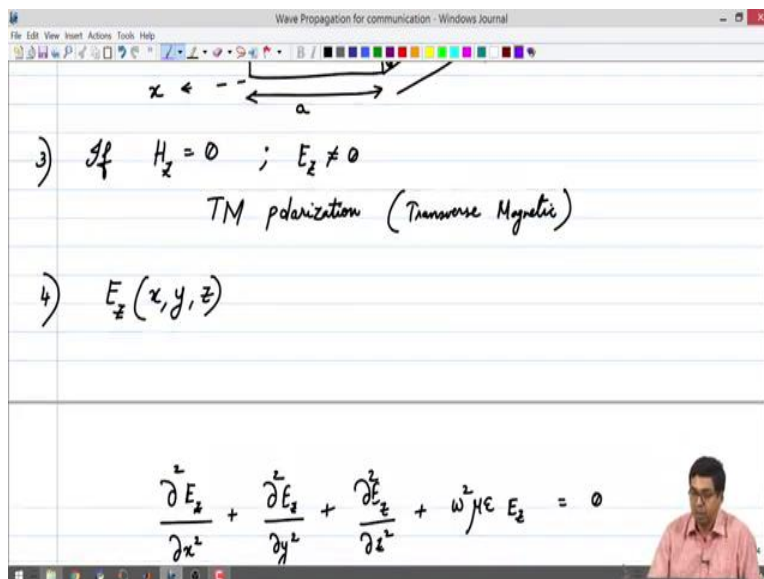 Wave Propagation for communication - Windows Journal
File Edit View Insert Actions Tools Help
x ← - -
a
3) If H_z = 0 ; E_z ≠ 0
TM polarization (Transverse Magnetic)
4) E_z (x, y, z)
∂²E_z/∂x² + ∂²E_z/∂y² + ∂²E_z/∂z² + ω²με E_z = 0